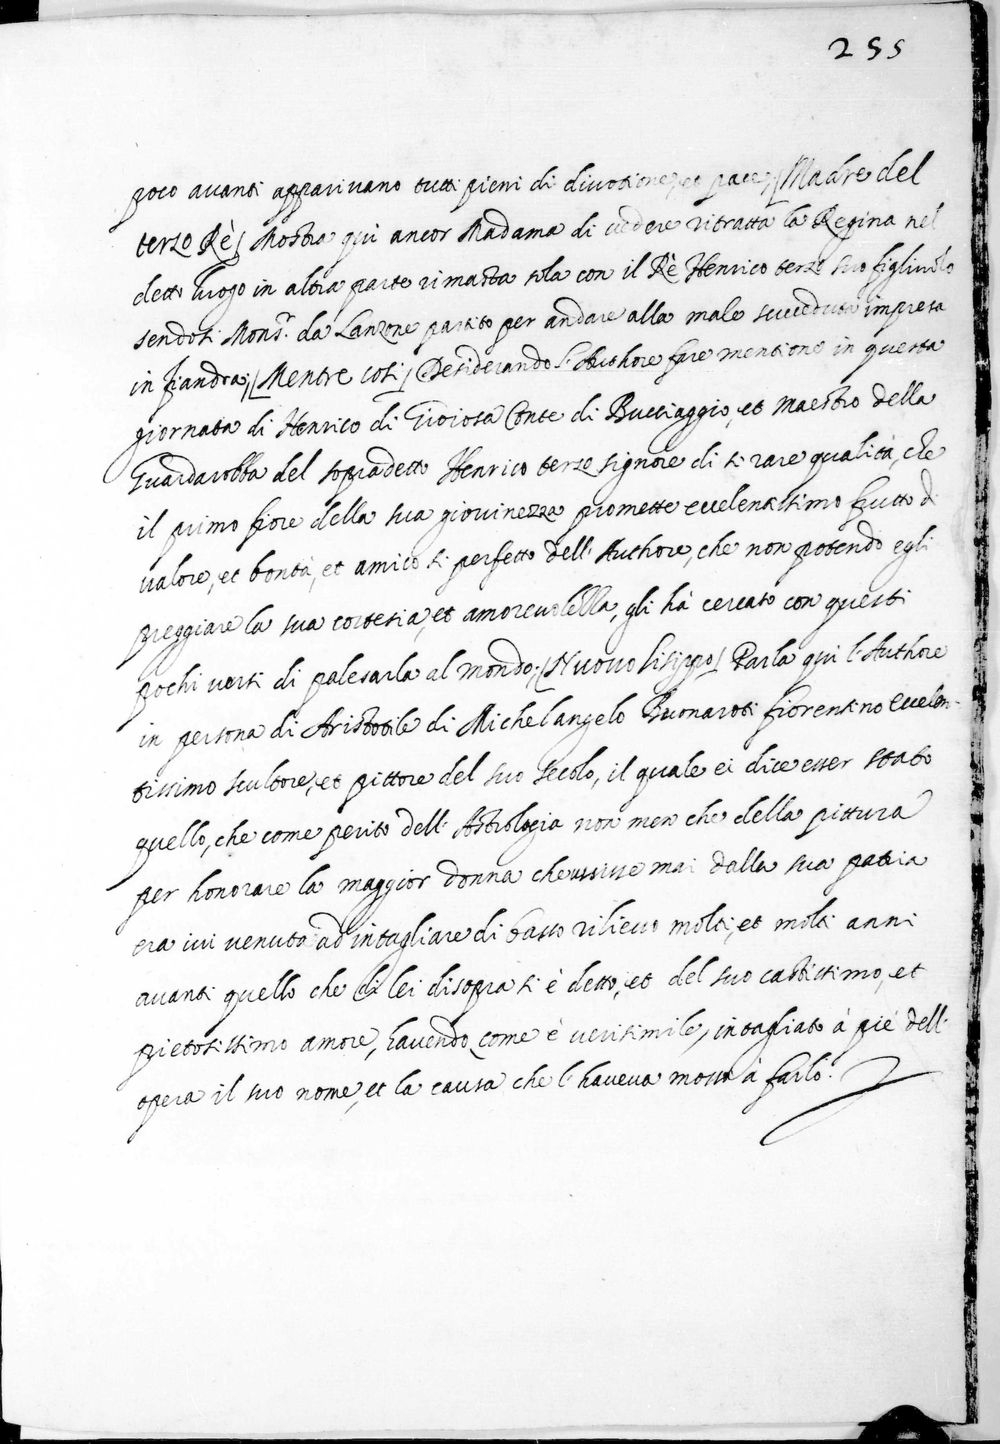 255
poco avanti apparivano tutti pieni di divotione, et pace; [Madre del
terzo Rè] Mostra quì ancor Madama di vedere ritratta la Regina nel
detto luogo in altra parte rimasta sola con il Rè Henrico terzo suo figliuolo
sendosi Mons.r da Lanzone partito per andare alla male succeduta impresa
in fiandra; [Mentre così] Desiderando l'Authore fare mentione in questa
giornata di Henrico di Gioiosa Conte di Bucciaggio, et Maestro della
Guardarobba del sopradetto Henrico terzo signore di si rare qualità, che
il primo fiore della sua giovinezza promette eccelentissimo frutto di
valore, et bontà, et amico si perfetto dell'Authore, che non potendo egli
preggiare la sua cortesia, et amorevolella, gli hà cercato con questi
pochi versi di palesarla al mondo; [Nuovo lisippo] Parla qui l'Authore
in persona di Aristotile di Michelangelo Buonaroti fiorentino eccelen-
tissimo scultore, et pittore del suo secolo, il quale ei dice esser stato
quello, che come perito dell'Astrologia non men che della pittura
per honorare la maggior donna che uscisse mai dalla sua patria
era ivi venuto ad intagliare di basso rilievo molti, et molti anni
avanti quello che di lei disopra si è detto, et del suo castissimo, et
pietosissimo amore, havendo come è verisimile, intagliato à piè dell'
opera il suo nome, et la causa che l'haveva mosso à farlo.